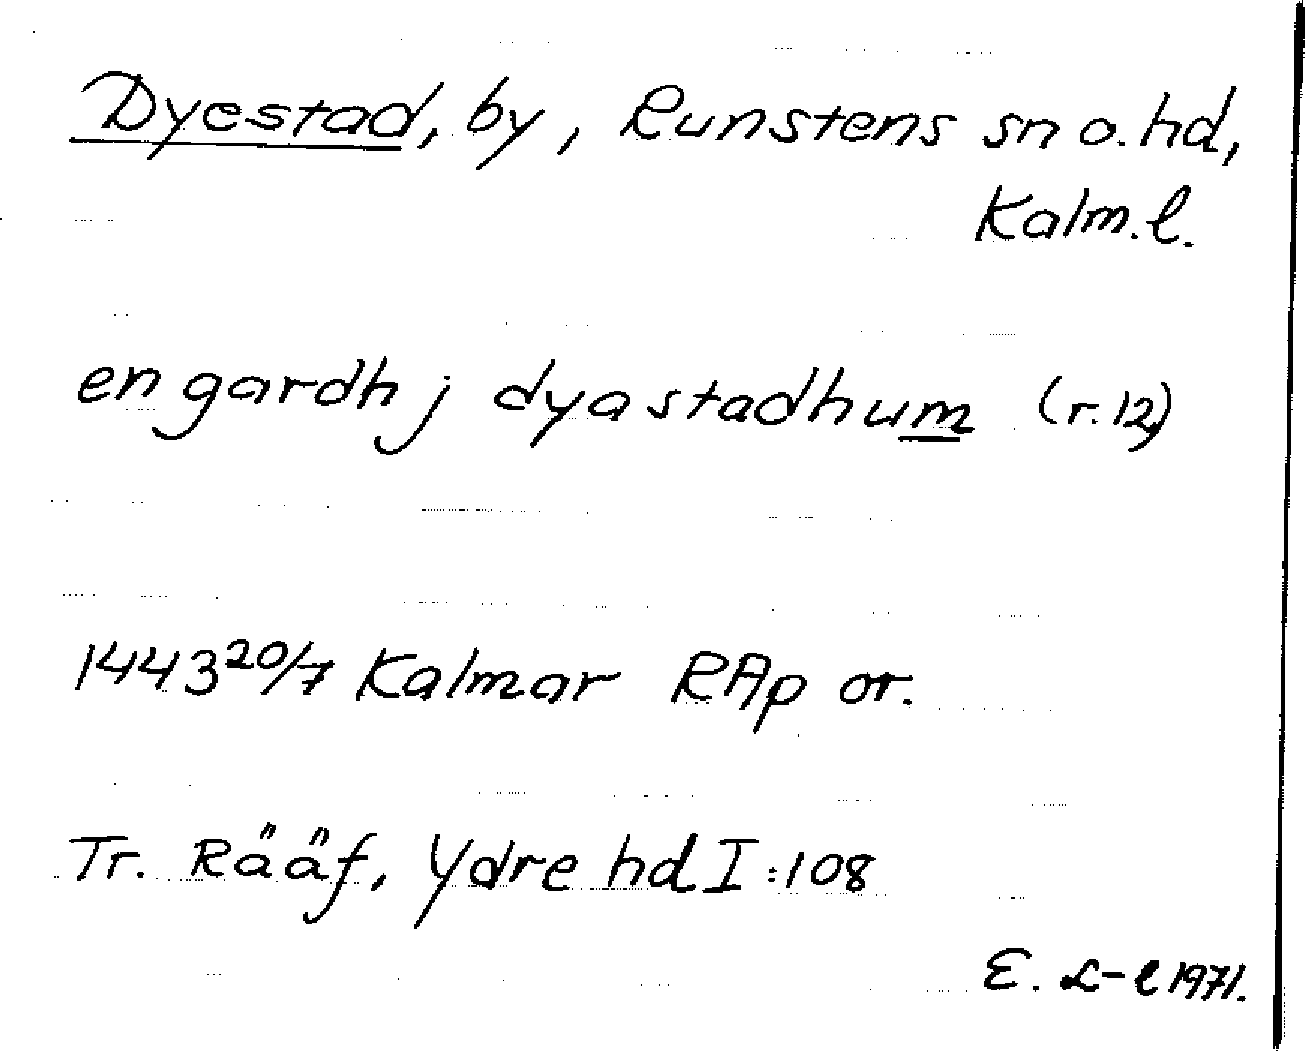 Dyestad, by, Runstens sn o. hd,
Kalm. l.
en gardh j dyastadhum (r. 12)
1443 20/7 Kalmar RAp or.
Tr. Rääf, Ydre hd I:108
E. L-l 1971.